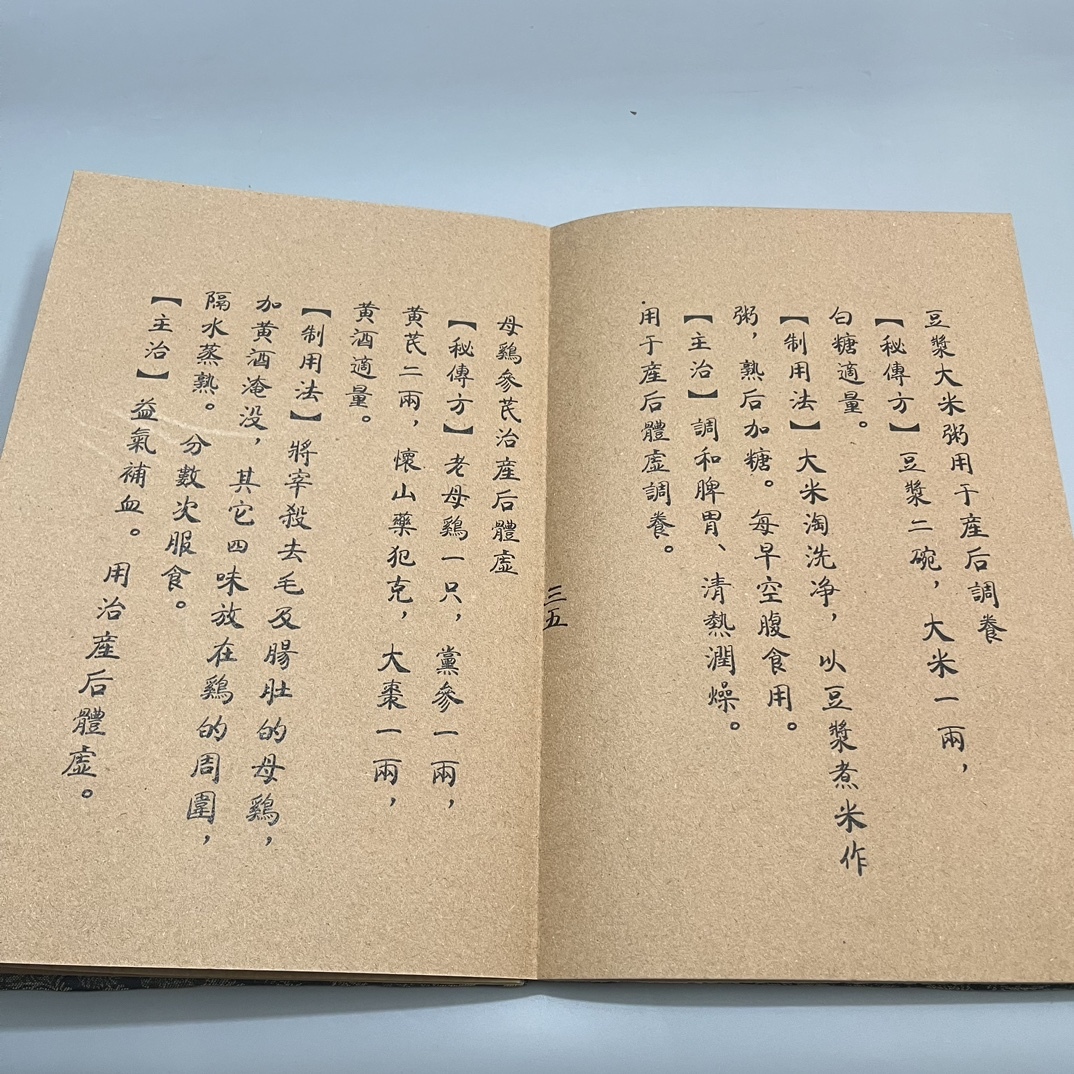 豆漿大米粥用于産后調養
【秘傳方】豆漿二碗，大米一兩，
白糖適量。
【制用法】大米淘洗净，以豆漿煮米作
粥，熟后加糖。每早空腹食用。
【主治】調和脾胃、清熱潤燥。
用于産后體虚調養。
三五
母鷄參芪治産后體虚
【秘傳方】老母鷄一只，黨參一兩，
黄芪二兩，懷山藥犯克，大棗一兩，
黄酒適量。
【制用法】將宰殺去毛及腸肚的母鷄，
加黄酒淹没，其它四味放在鷄的周圍，
隔水蒸熟。分數次服食。
【主治】益氣補血。用治産后體虚。